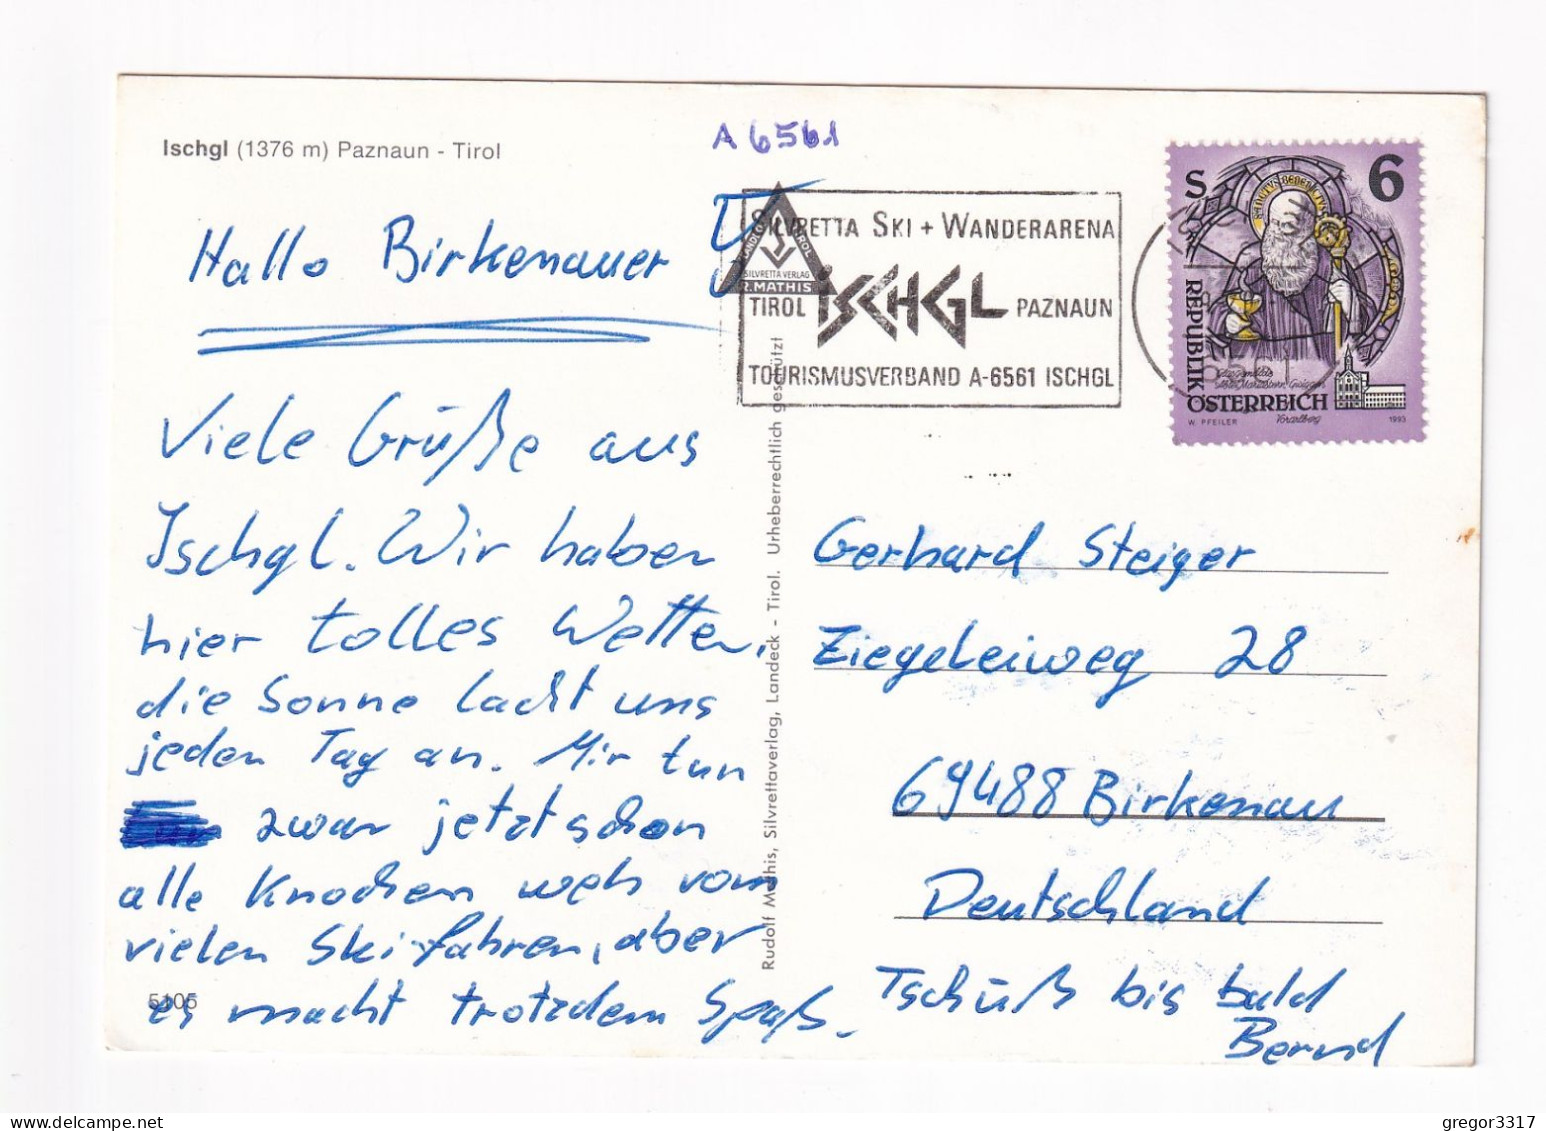 Ischgl (1376 m) Paznaun - Tirol
A 6561
SILVRETTA SKI + WANDERARENA
TIROL ISCHGL PAZNAUN
TOURISMUSVERBAND A-6561 ISCHGL
SILVRETTA VERLAG
R. MATHIS
S 6
SANCTUS BENEDICTUS
REPUBLIK
ÖSTERREICH
Vorarlberg
W. PFEILER 1993
Hallo Birkenauer
Viele Grüße aus
Ischgl. Wir haben
hier tolles Wetter,
die Sonne lacht uns
jeden Tag an. Mir tun
zwar jetzt schon
alle Knochen weh vom
vielen Skifahren, aber
es macht trotzdem Spaß.
5105
Rudolf Mathis, Silvrettaverlag, Landeck - Tirol. Urheberrechtlich geschützt
Gerhard Steiger
Ziegeleiweg 28
69488 Birkenau
Deutschland
Tschüß bis bald
Bernd
gregor3317